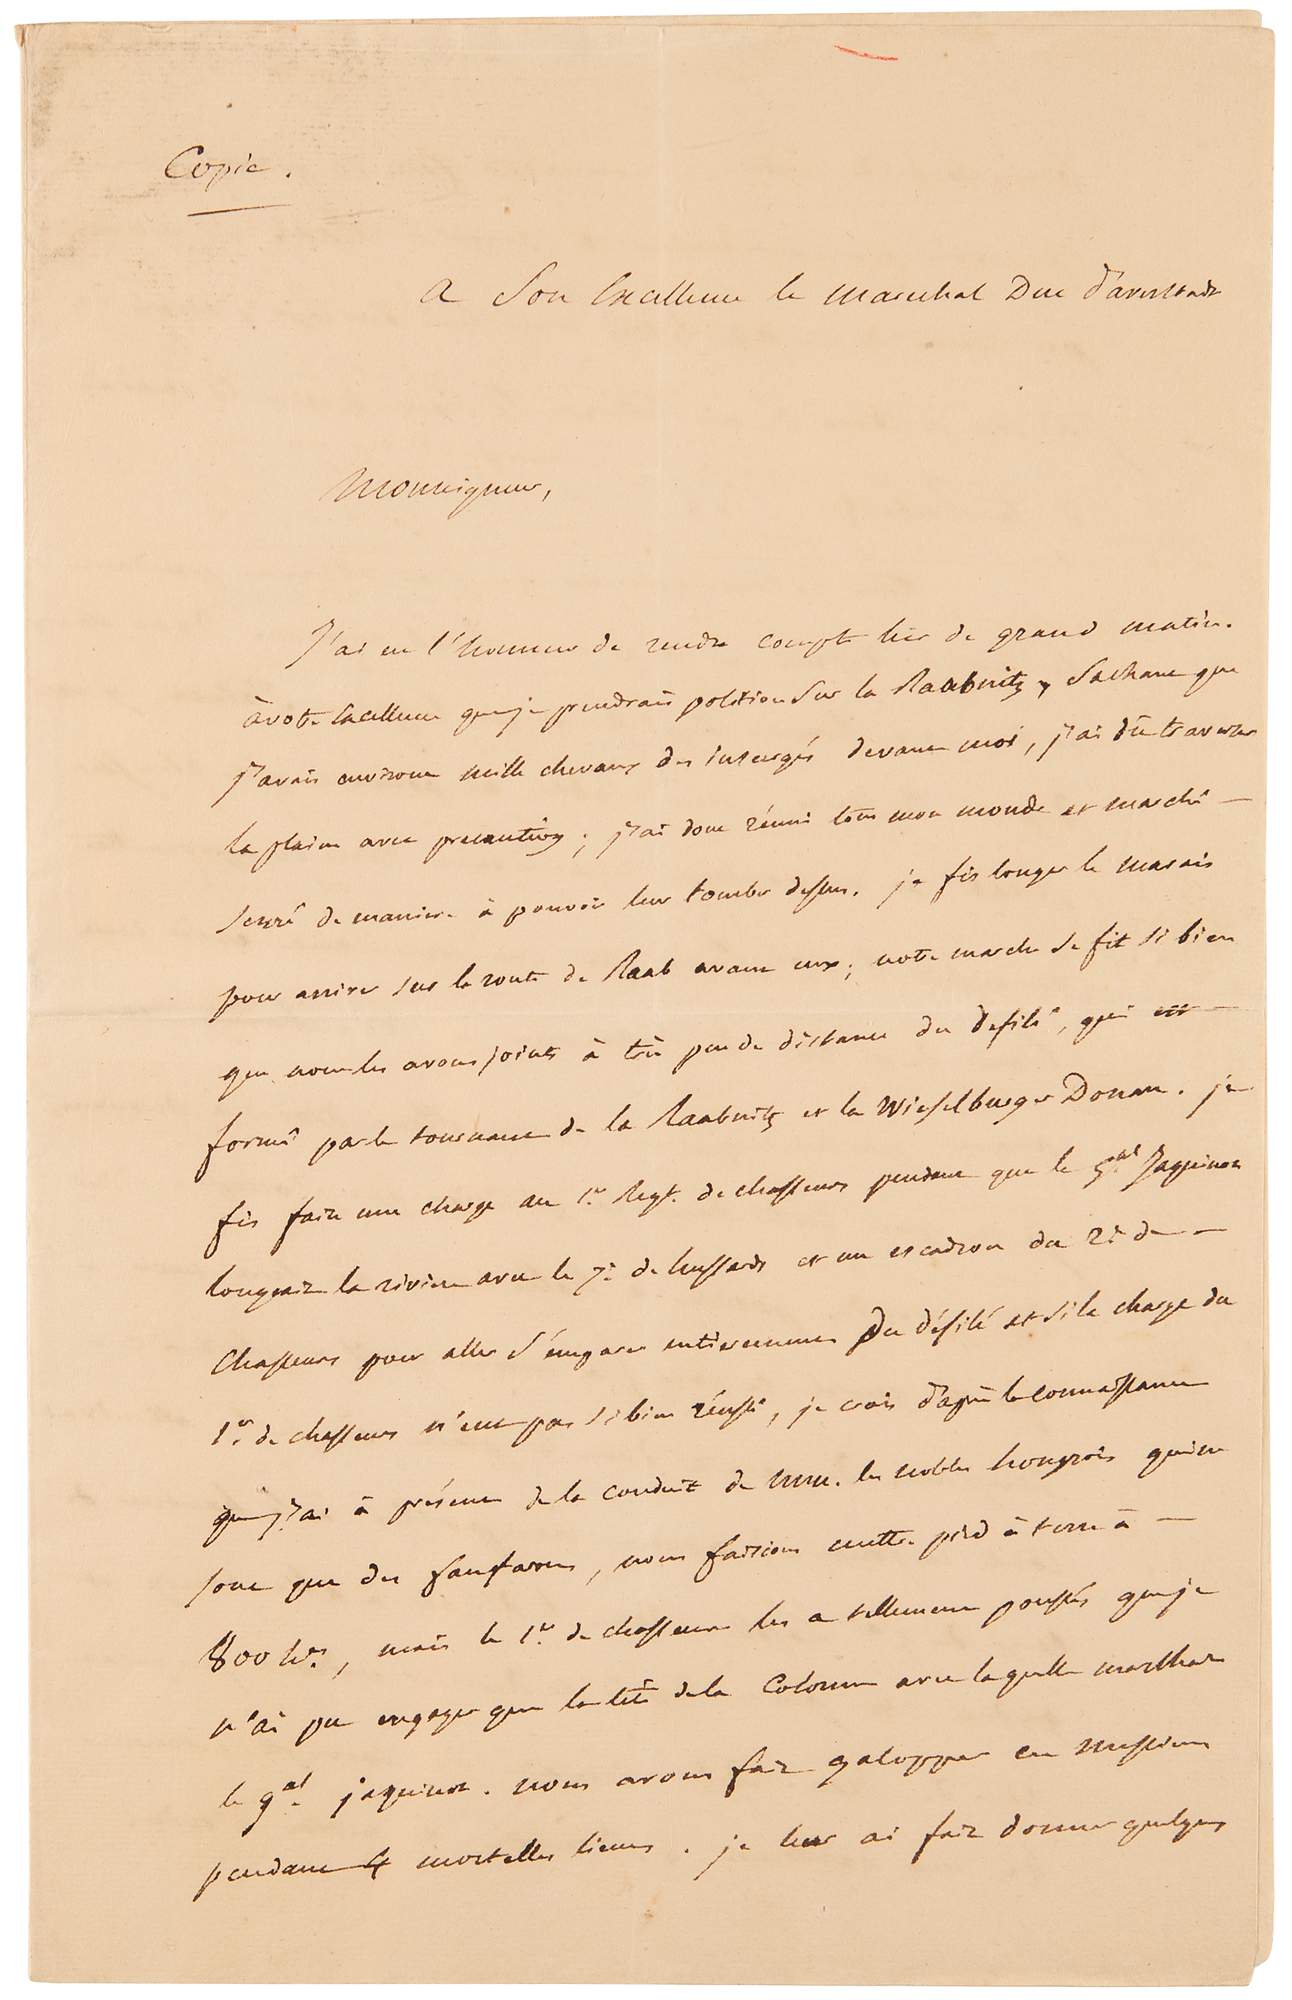 Copie.
A Son Excellence le Marechal Duc d'averstadt
Monseigneur,
J'ai eu l'honneur de rendre compte hier de grand matin
à votre Excellence que je prendrais position sur la Raabnitz, Sachant que
j'avais environ mille chevaux des insurgés devant moi, j'ai dû traverser
la plaine avec precaution ; j'ai donc réuni tout mon monde et marché —
serré de maniere à pouvoir leur tomber dessus. je fis longer le marais
pour arriver sur la route de Raab avant eux ; notre marche se fit si bien
que nous les avons joints à très peu de distance du defilé, qui est —
formé par le tournant de la Raabnitz et la Wieselburger Donau. je
fis faire une charge au 1er. Regt. de chasseurs pendant que le gal. Jaquinot
longeait la riviere avec le 7e. de hussards et un escadron du 2e de —
Chasseurs pour aller s'emparer entierement du défilé et si la charge du
1er. de chasseurs n'eut pas si bien réussi, je crois d'après la connaissance
que j'ai à présent de la conduite de MM. les nobles hongrois qui ne
sont que des fanfarons, nous faisions mettre pied à terre à —
800 hes., mais le 1er. de chasseurs les a tellement poussés que je
n'ai pu engager que la tête de la Colonne avec laquelle marchait
le gal. jaquinot. nous avons fait galopper ces Messieurs
pendant 4 mortelles lieues. je leur ai fait donner quelques